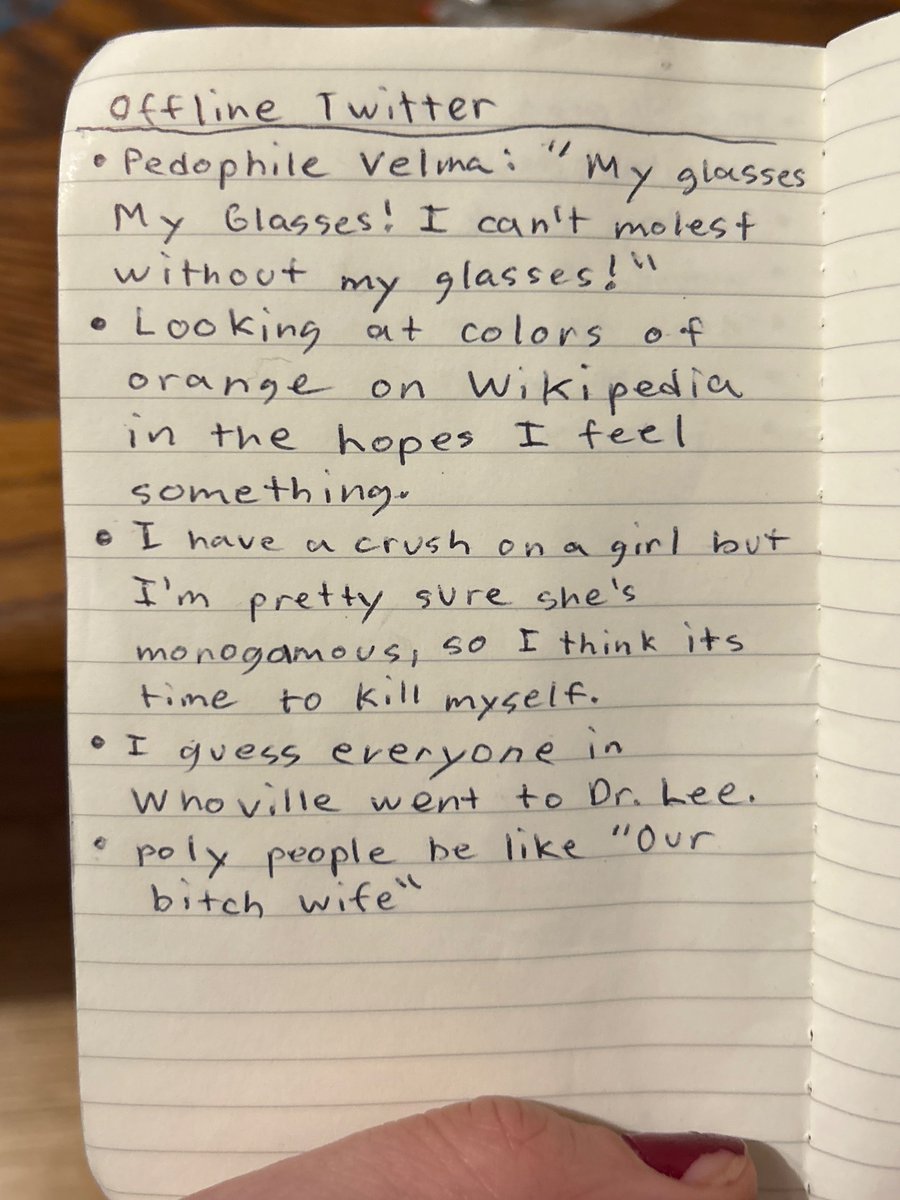 Offline Twitter
• Pedophile Velma: "My glasses
My Glasses! I can't molest
without my glasses!"
• Looking at colors of
orange on Wikipedia
in the hopes I feel
something.
• I have a crush on a girl but
I'm pretty sure she's
monogamous, so I think its
time to kill myself.
• I guess everyone in
Whoville went to Dr. Lee.
• poly people be like "Our
bitch wife"